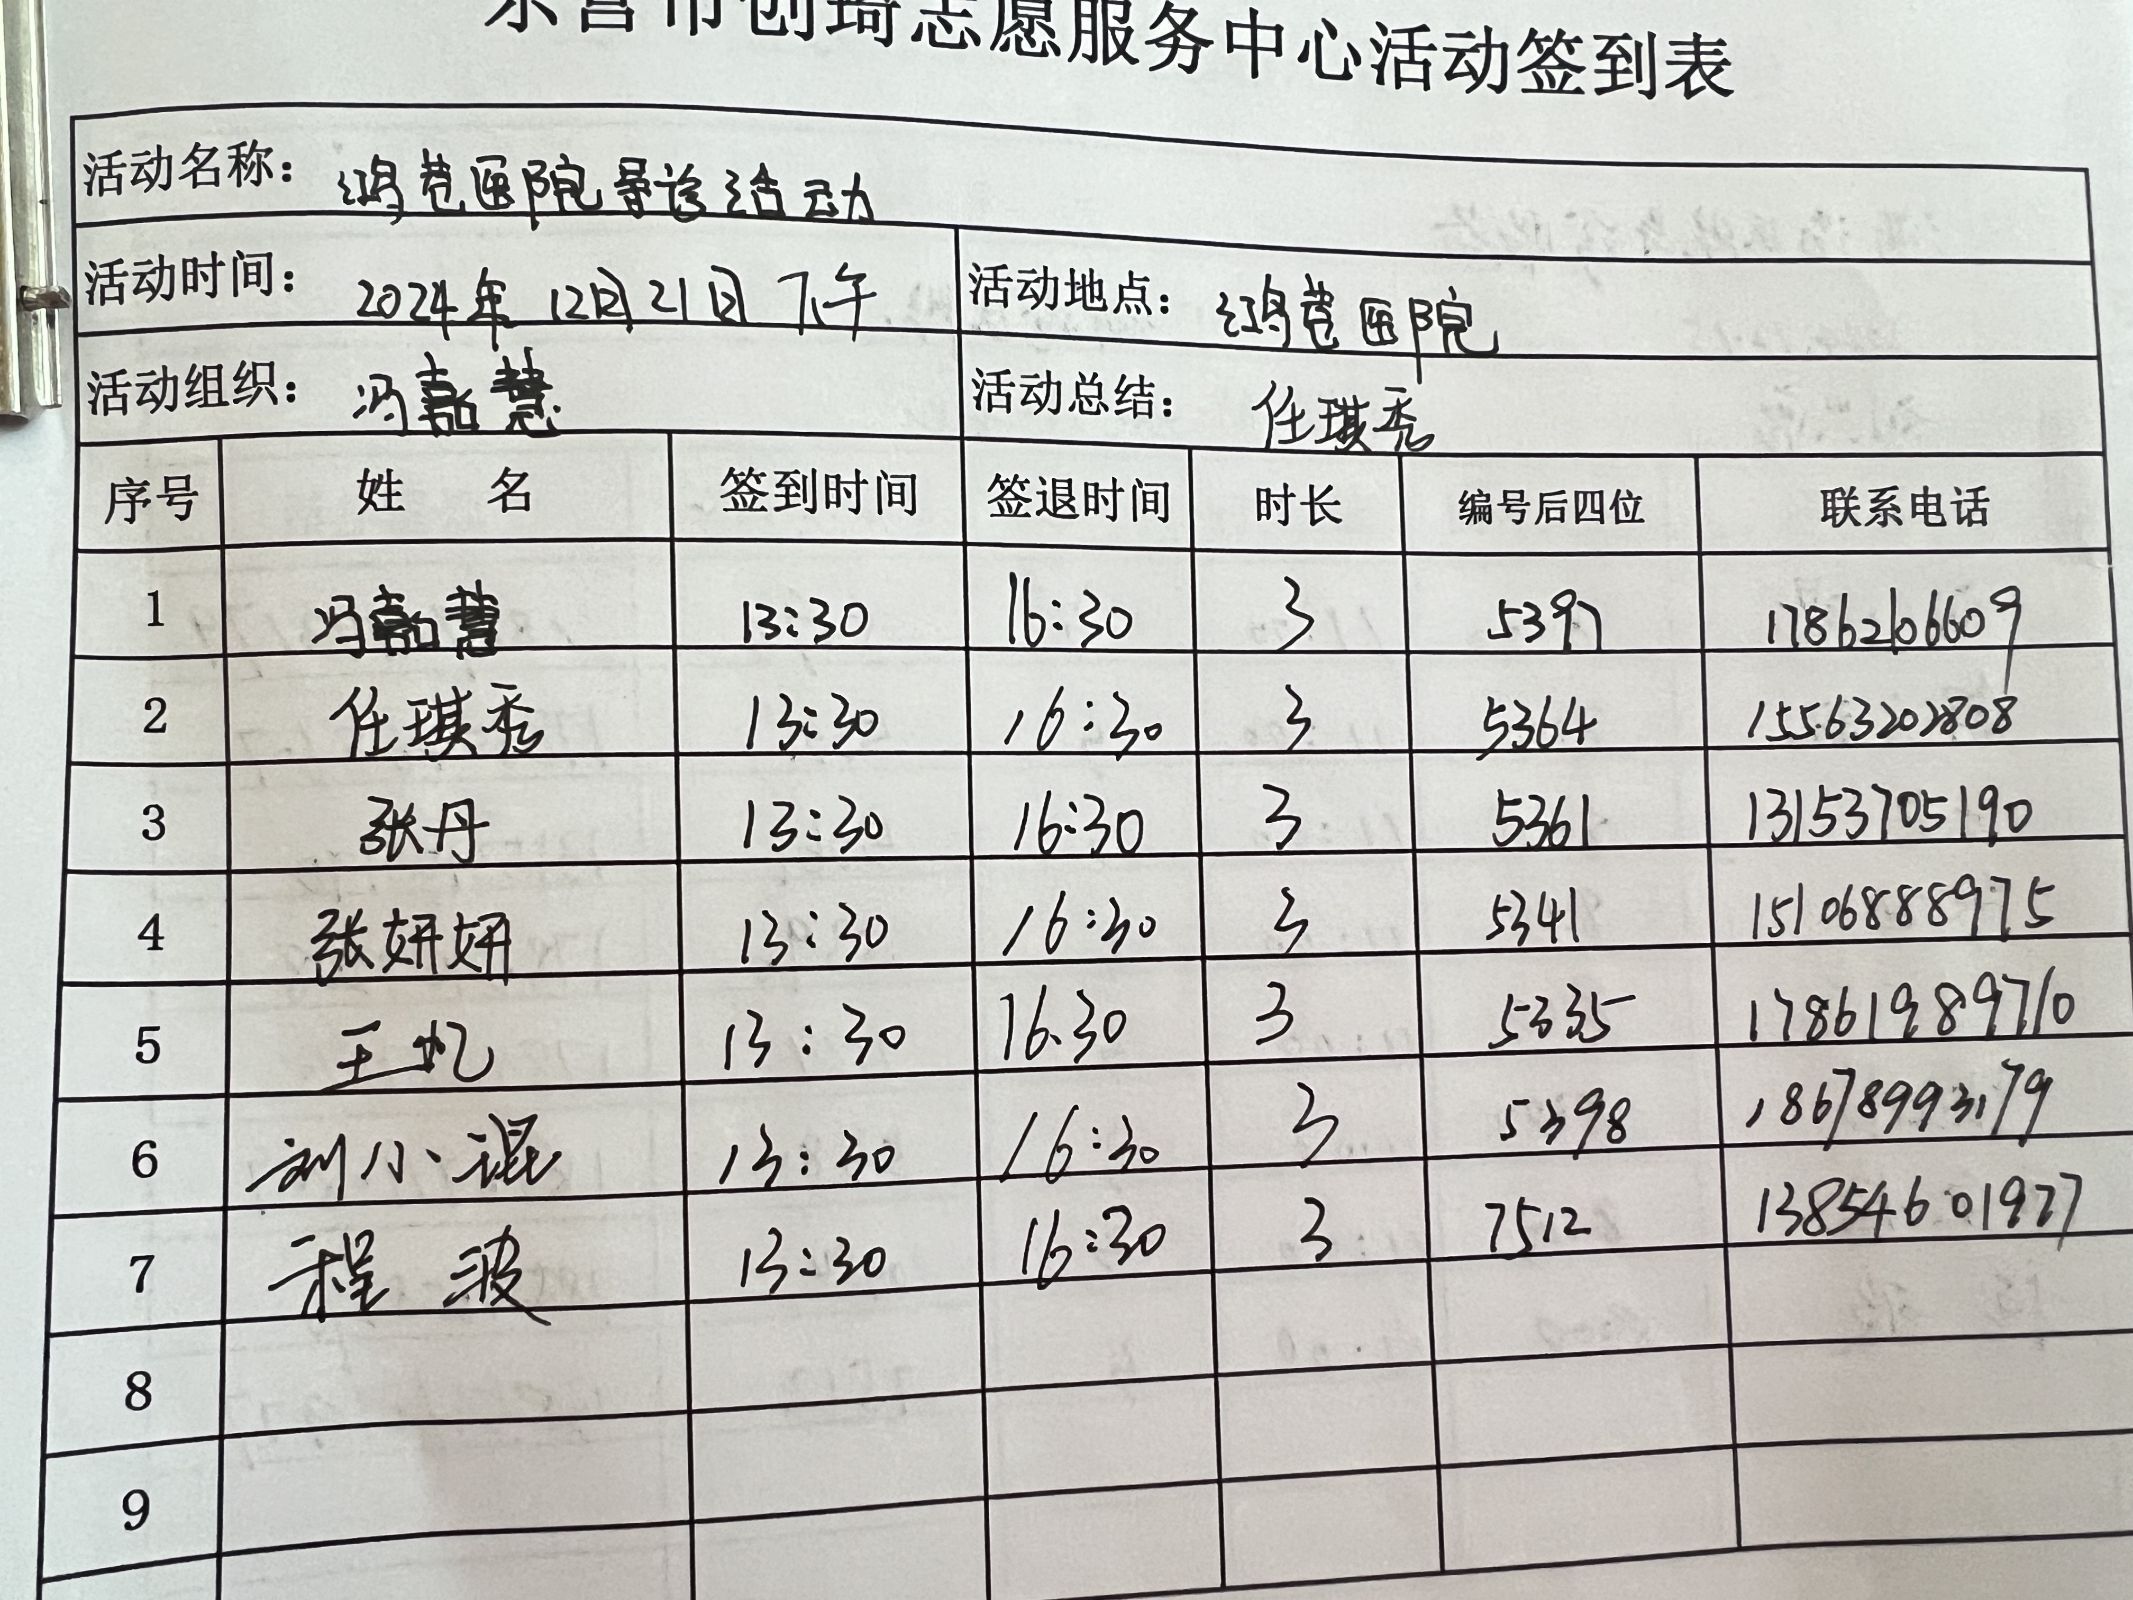 东营市创琦志愿服务中心活动签到表
活动名称： 鸿苑医院导诊活动
活动时间： 2024年12月21日下午 活动地点： 鸿苑医院
活动组织： 冯嘉慧 活动总结： 任琪秀
序号 姓名 签到时间 签退时间 时长 编号后四位 联系电话
1 冯嘉慧 13:30 16:30 3 5397 17862106609
2 任琪秀 13:30 16:30 3 5364 15563202808
3 张丹 13:30 16:30 3 5361 13153705190
4 张妍妍 13:30 16:30 3 5341 15106888975
5 王忆 13:30 16.30 3 5335 17861989710
6 刘小琨 13:30 16:30 3 5398 18678993179
7 程波 13:30 16:30 3 7512 13854601977
8
9